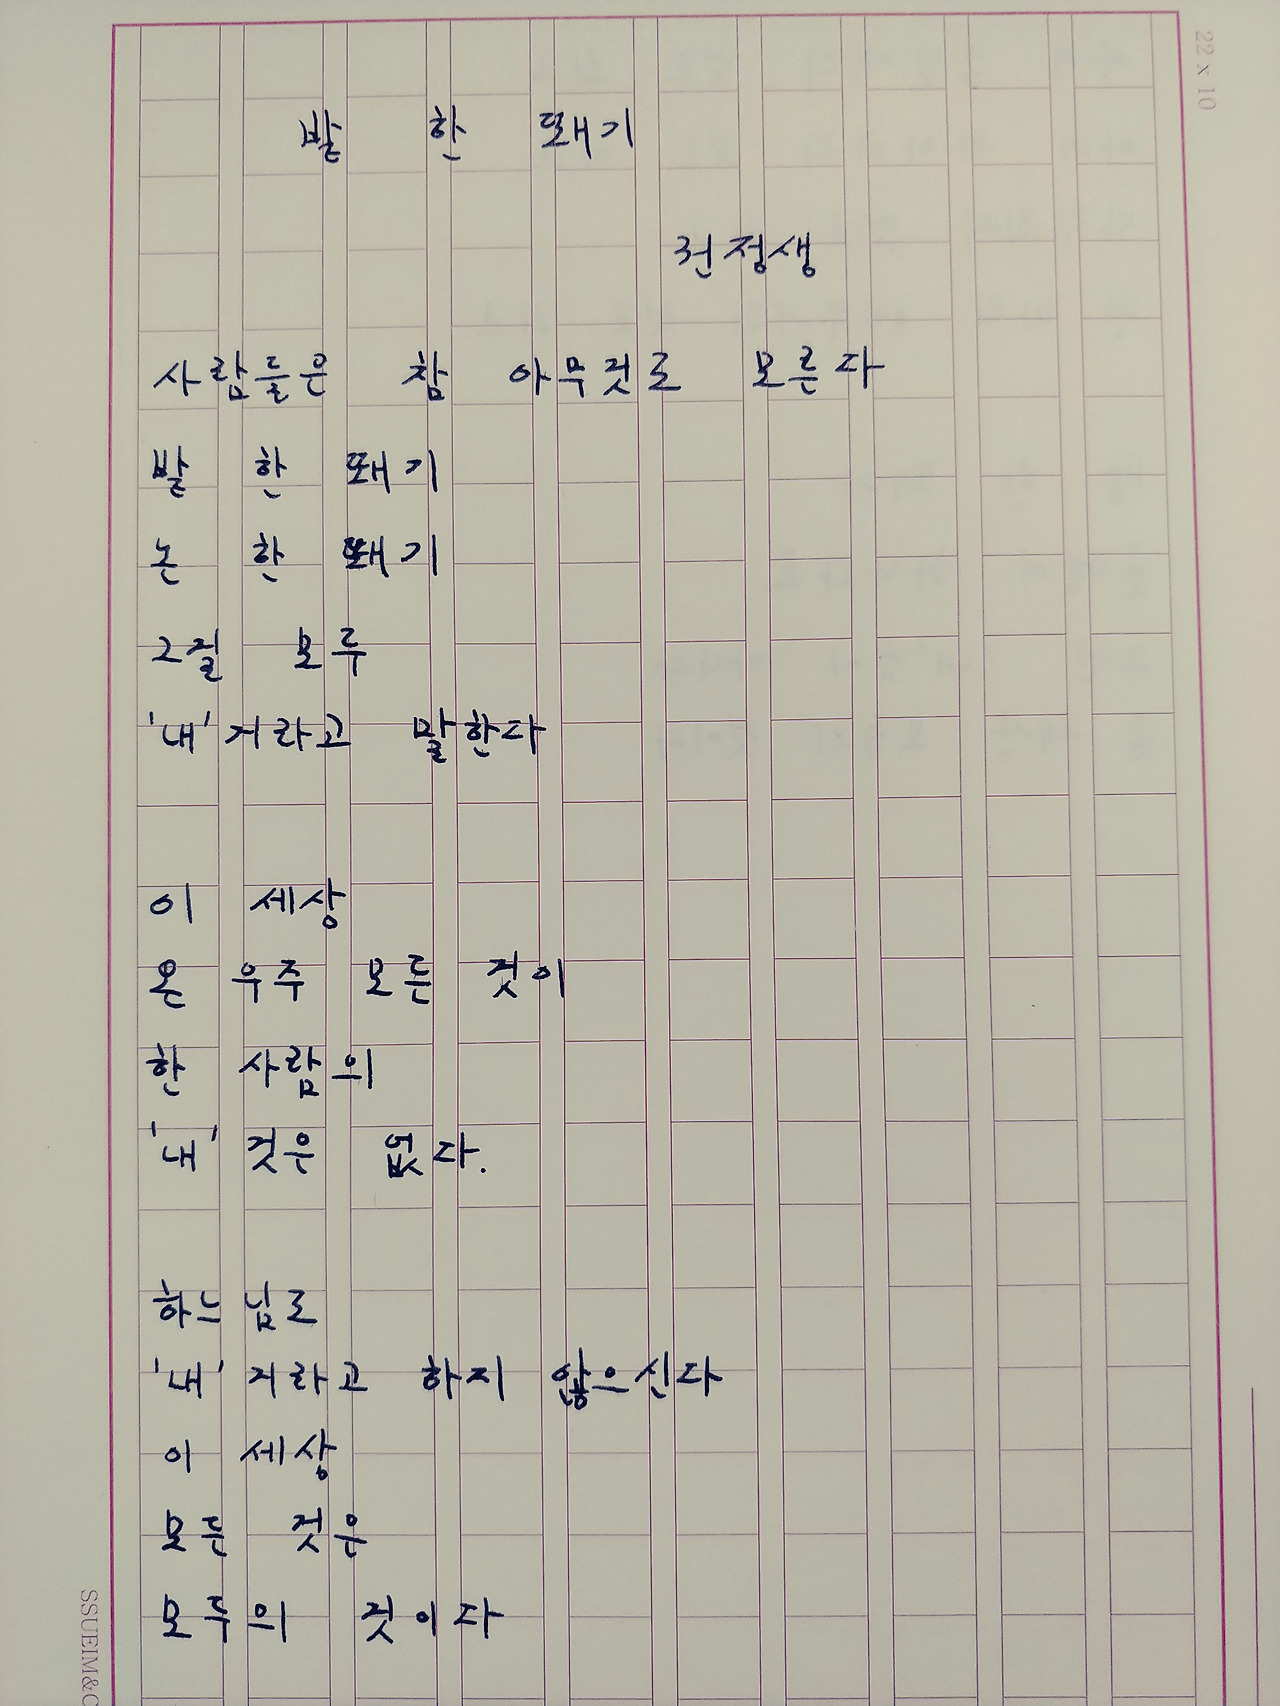 밭 한 뙈기
권정생
사람들은 참 아무것도 모른다
밭 한 뙈기
논 한 뙈기
그걸 모두
'내' 거라고 말한다
이 세상
온 우주 모든 것이
한 사람의
'내' 것은 없다.
하느님도
'내' 거라고 하지 않으신다
이 세상
모든 것은
모두의 것이다
22 x 10
SSUEIM&C